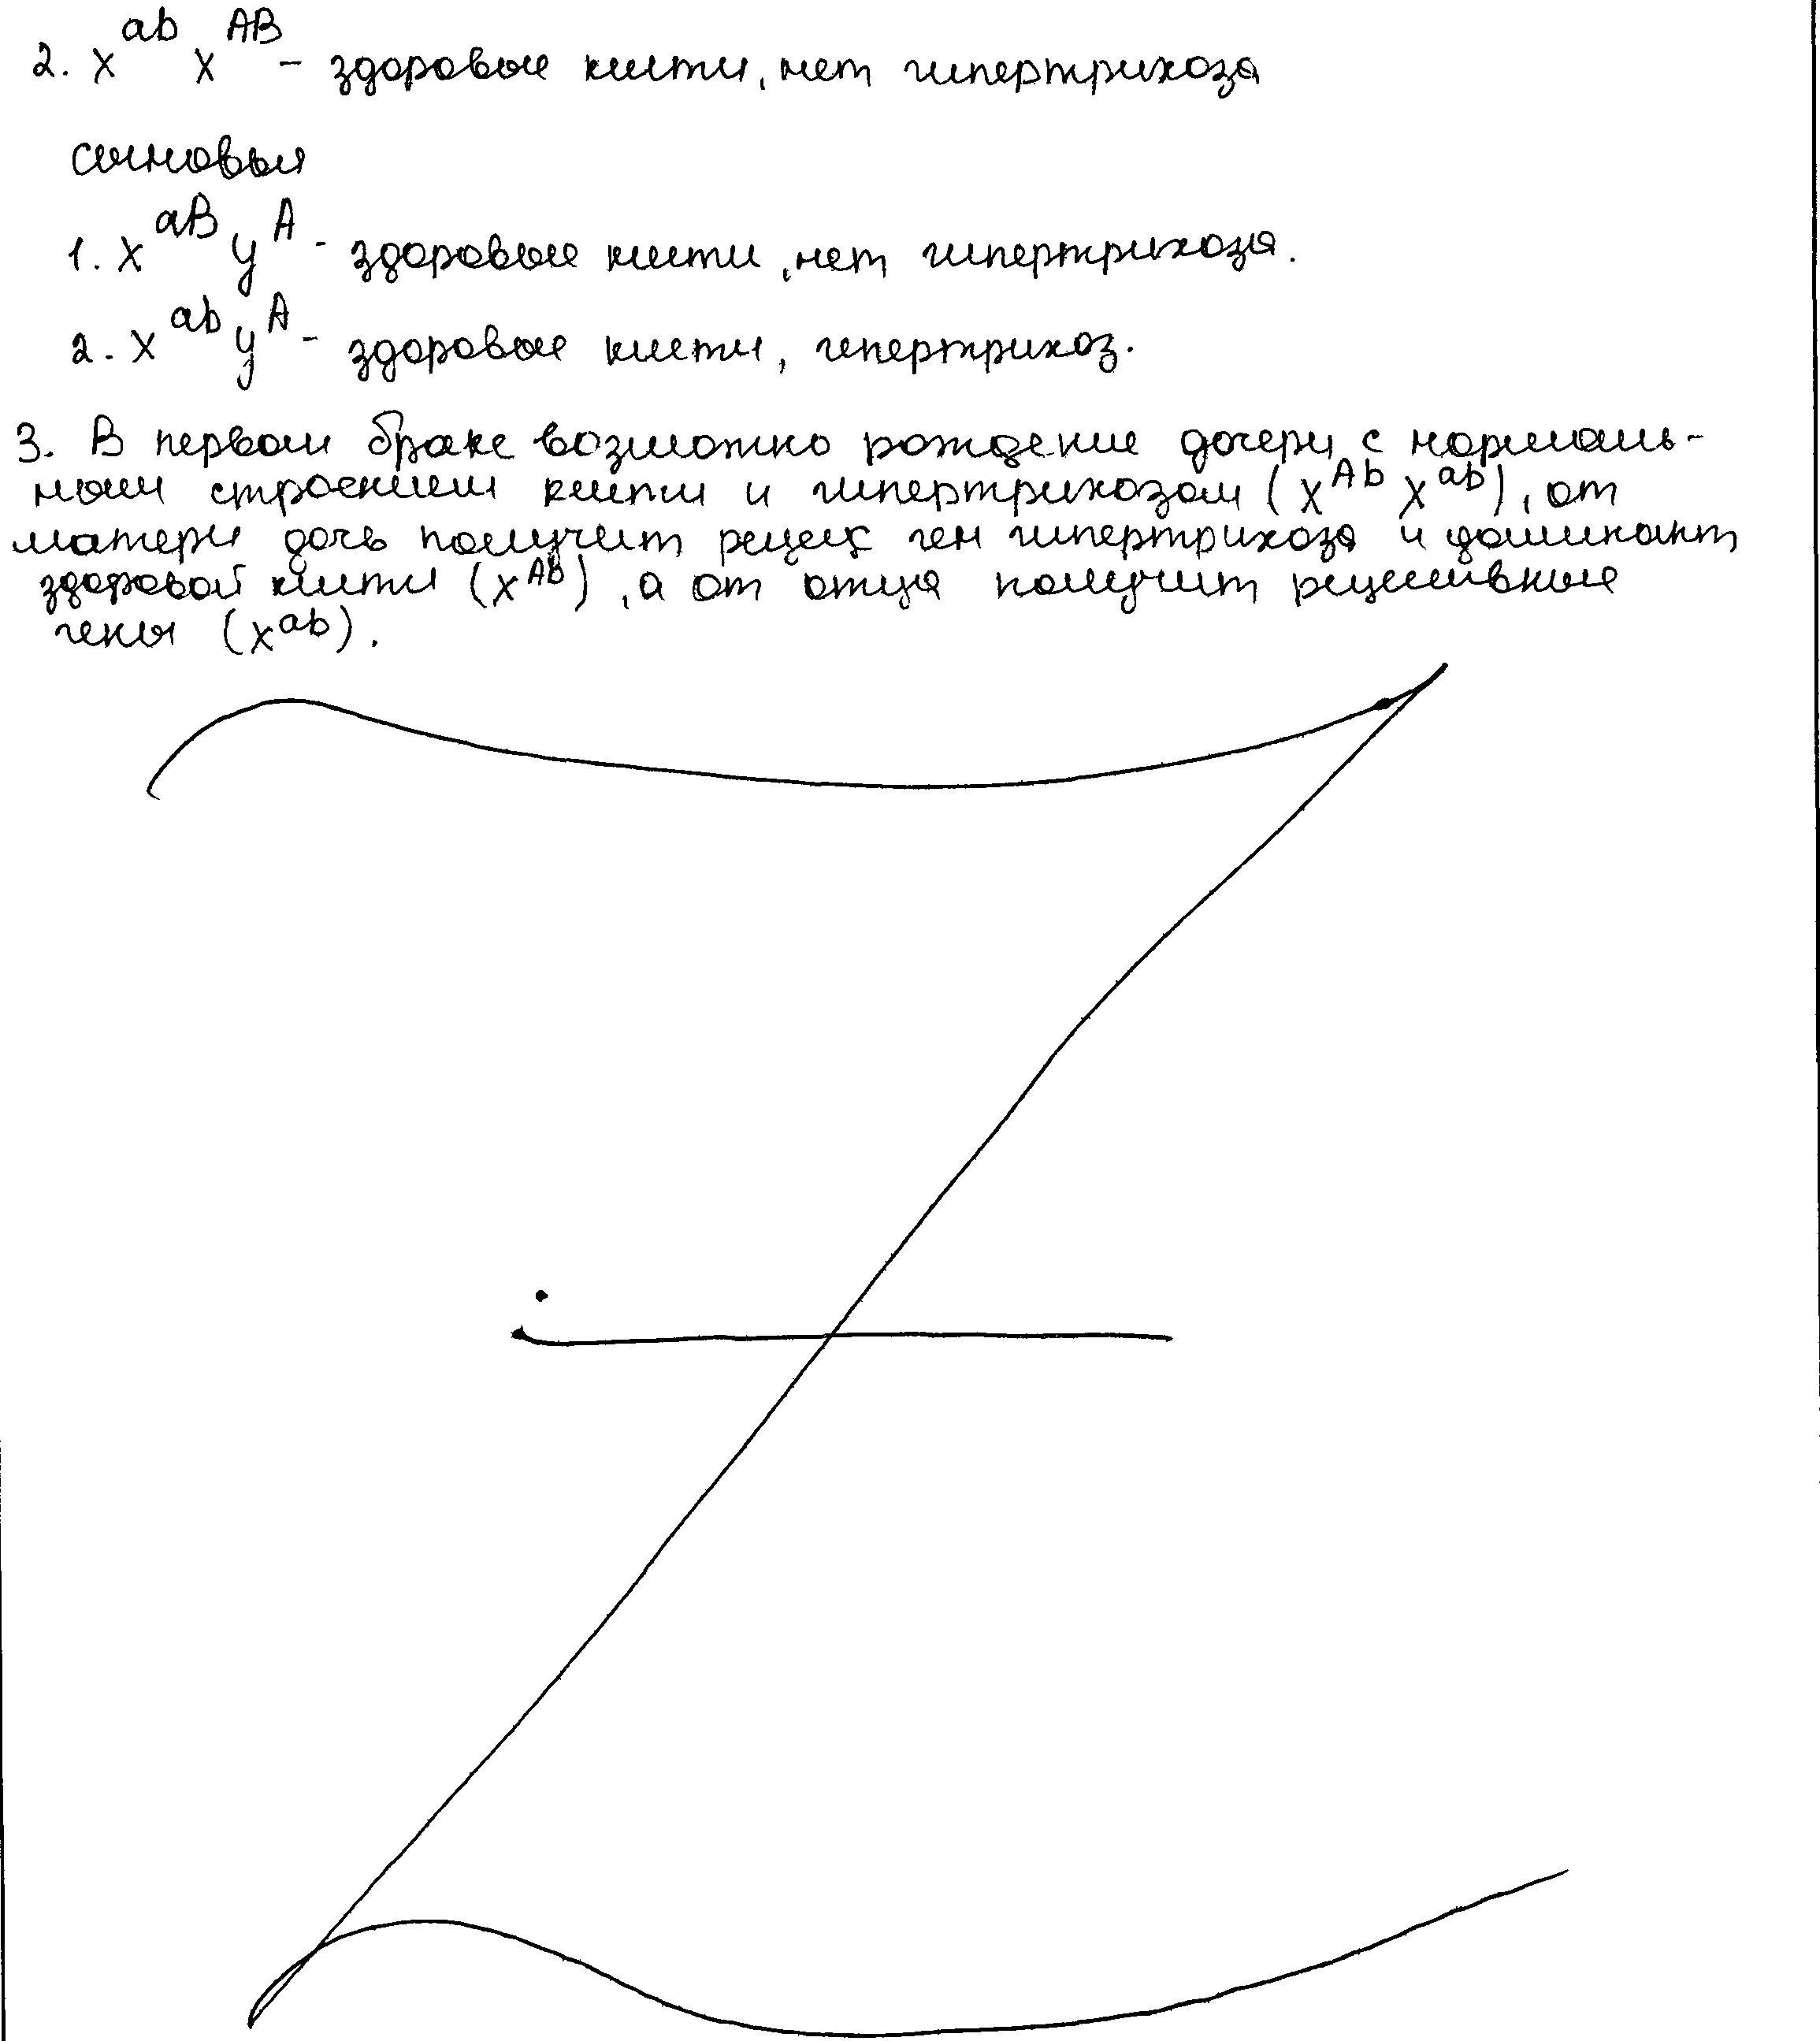 2. x^ab x^AB - здоровые кисти, нет гипертрихоза
сыновья
1. x^aB y^A - здоровые кисти, нет гипертрихоза.
2. x^ab y^A - здоровые кисти, гипертрихоз.
3. В первом браке возможно рождение дочери с нормаль-
ным строением кисти и гипертрихозом (x^Ab x^ab), от
матери дочь получит рецес ген гипертрихоза и доминант
здоровой кисти (x^Ab), а от отца получит рецессивные
гены (x^ab).